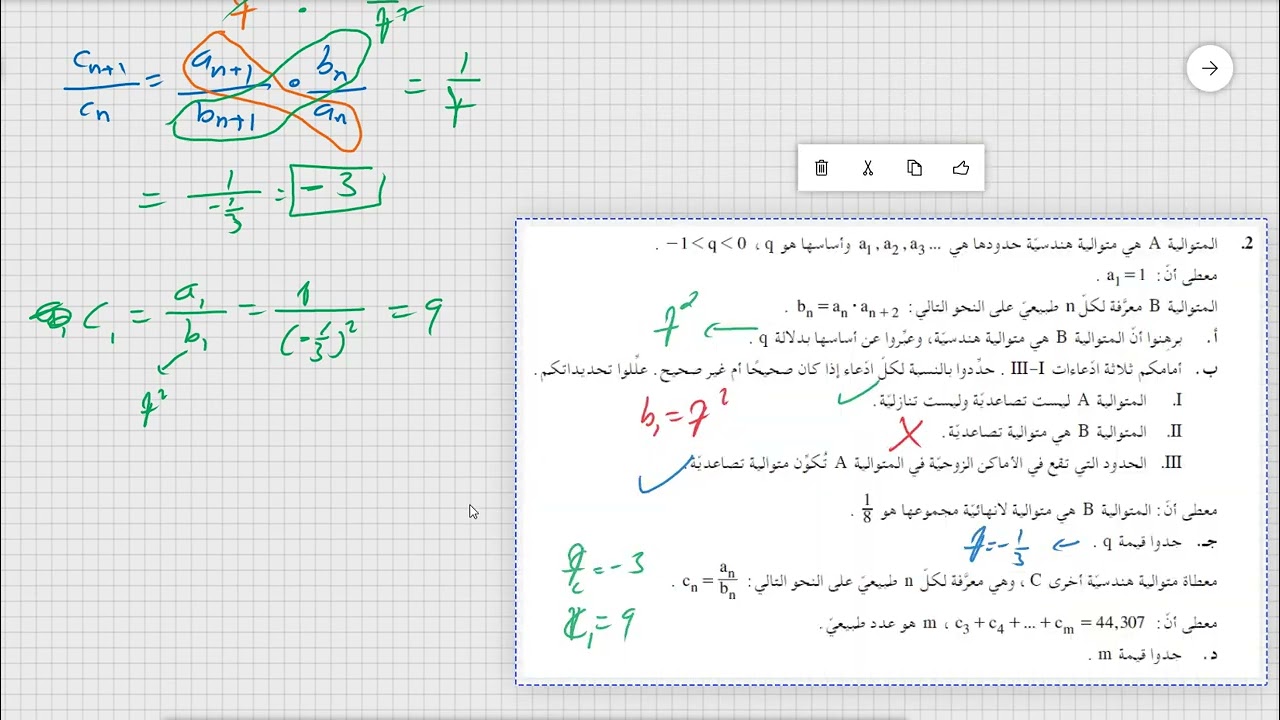 c_{n+1}/c_n = a_{n+1}/b_{n+1} · b_n/a_n = 1/q
= 1/(-1/3) = -3
C_1 = a_1/b_1 = 1/(-1/3)^2 = 9
q^2
2. المتوالية A هي متوالية هندسيّة حدودها هي a_1, a_2, a_3 ... وأساسها هو q ، -1 < q < 0 .
معطى أنّ: a_1 = 1 .
المتوالية B معرَّفة لكلّ n طبيعيّ على النحو التالي: b_n = a_n · a_{n+2} .
أ. برهِنوا أنّ المتوالية B هي متوالية هندسيّة، وعبِّروا عن أساسها بدلالة q . ← q^2
ب. أمامكم ثلاثة ادّعاءات I-III . حدِّدوا بالنسبة لكلّ ادّعاء إذا كان صحيحًا أم غير صحيح. علِّلوا تحديداتكم.
I. المتوالية A ليست تصاعديّة وليست تنازليّة. ✓
b_1 = q^2
II. المتوالية B هي متوالية تصاعديّة. X
III. الحدود التي تقع في الأماكن الزوجيّة في المتوالية A تُكوِّن متوالية تصاعديّة. ✓
معطى أنّ: المتوالية B هي متوالية لانهائيّة مجموعها هو 1/8 .
جـ. جدوا قيمة q . ← q = -1/3
معطاة متوالية هندسيّة أخرى C ، وهي معرَّفة لكلّ n طبيعيّ على النحو التالي: c_n = a_n/b_n .
q_c = -3
معطى أنّ: c_3 + c_4 + ... + c_m = 44,307 ، m هو عدد طبيعيّ.
c_1 = 9
د. جدوا قيمة m .